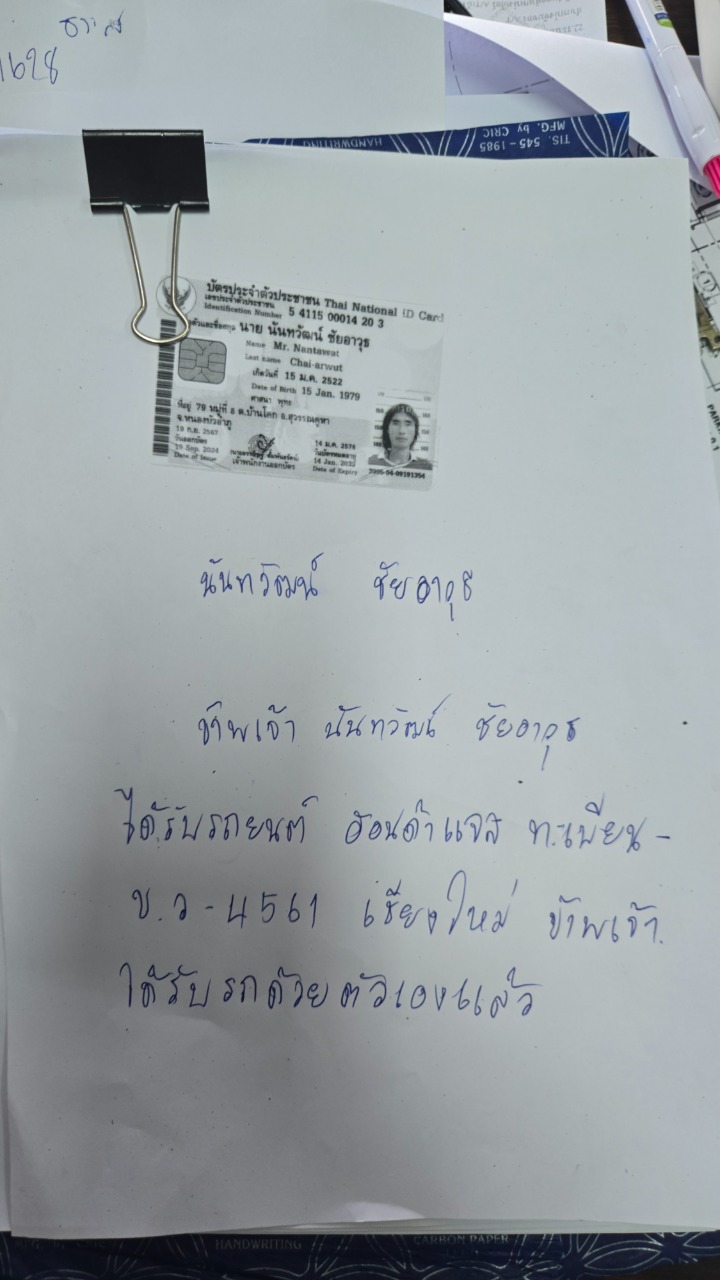 ธวัส
1628
TIS. 545 - 1985
MFG. by CRIC
HANDWRITING
บัตรประจำตัวประชาชน Thai National ID Card
เลขประจำตัวประชาชน
Identification Number 5 4115 00014 20 3
ชื่อตัวและชื่อสกุล นาย นันทวัฒน์ ชัยอาวุธ
Name Mr. Nantawat
Last name Chai-arwut
เกิดวันที่ 15 ม.ค. 2522
Date of Birth 15 Jan. 1979
ศาสนา พุทธ
ที่อยู่ 79 หมู่ที่ 8 ต.บ้านโคก อ.สุวรรณคูหา
จ.หนองบัวลำภู
19 ก.ย. 2567
วันออกบัตร
19 Sep. 2024
Date of Issue
เจ้าพนักงานออกบัตร
14 ม.ค. 2576
วันบัตรหมดอายุ
14 Jan. 2033
Date of Expiry
นันทวัฒน์ ชัยอาวุธ
ข้าพเจ้า นันทวัฒน์ ชัยอาวุธ
ได้รับรถยนต์ ฮอนด้าแจส ทะเบียน -
ข.ว - 4561 เชียงใหม่ ข้าพเจ้า
ได้รับรถด้วยตัวเองแล้ว
HANDWRITING
CARBON PAPER